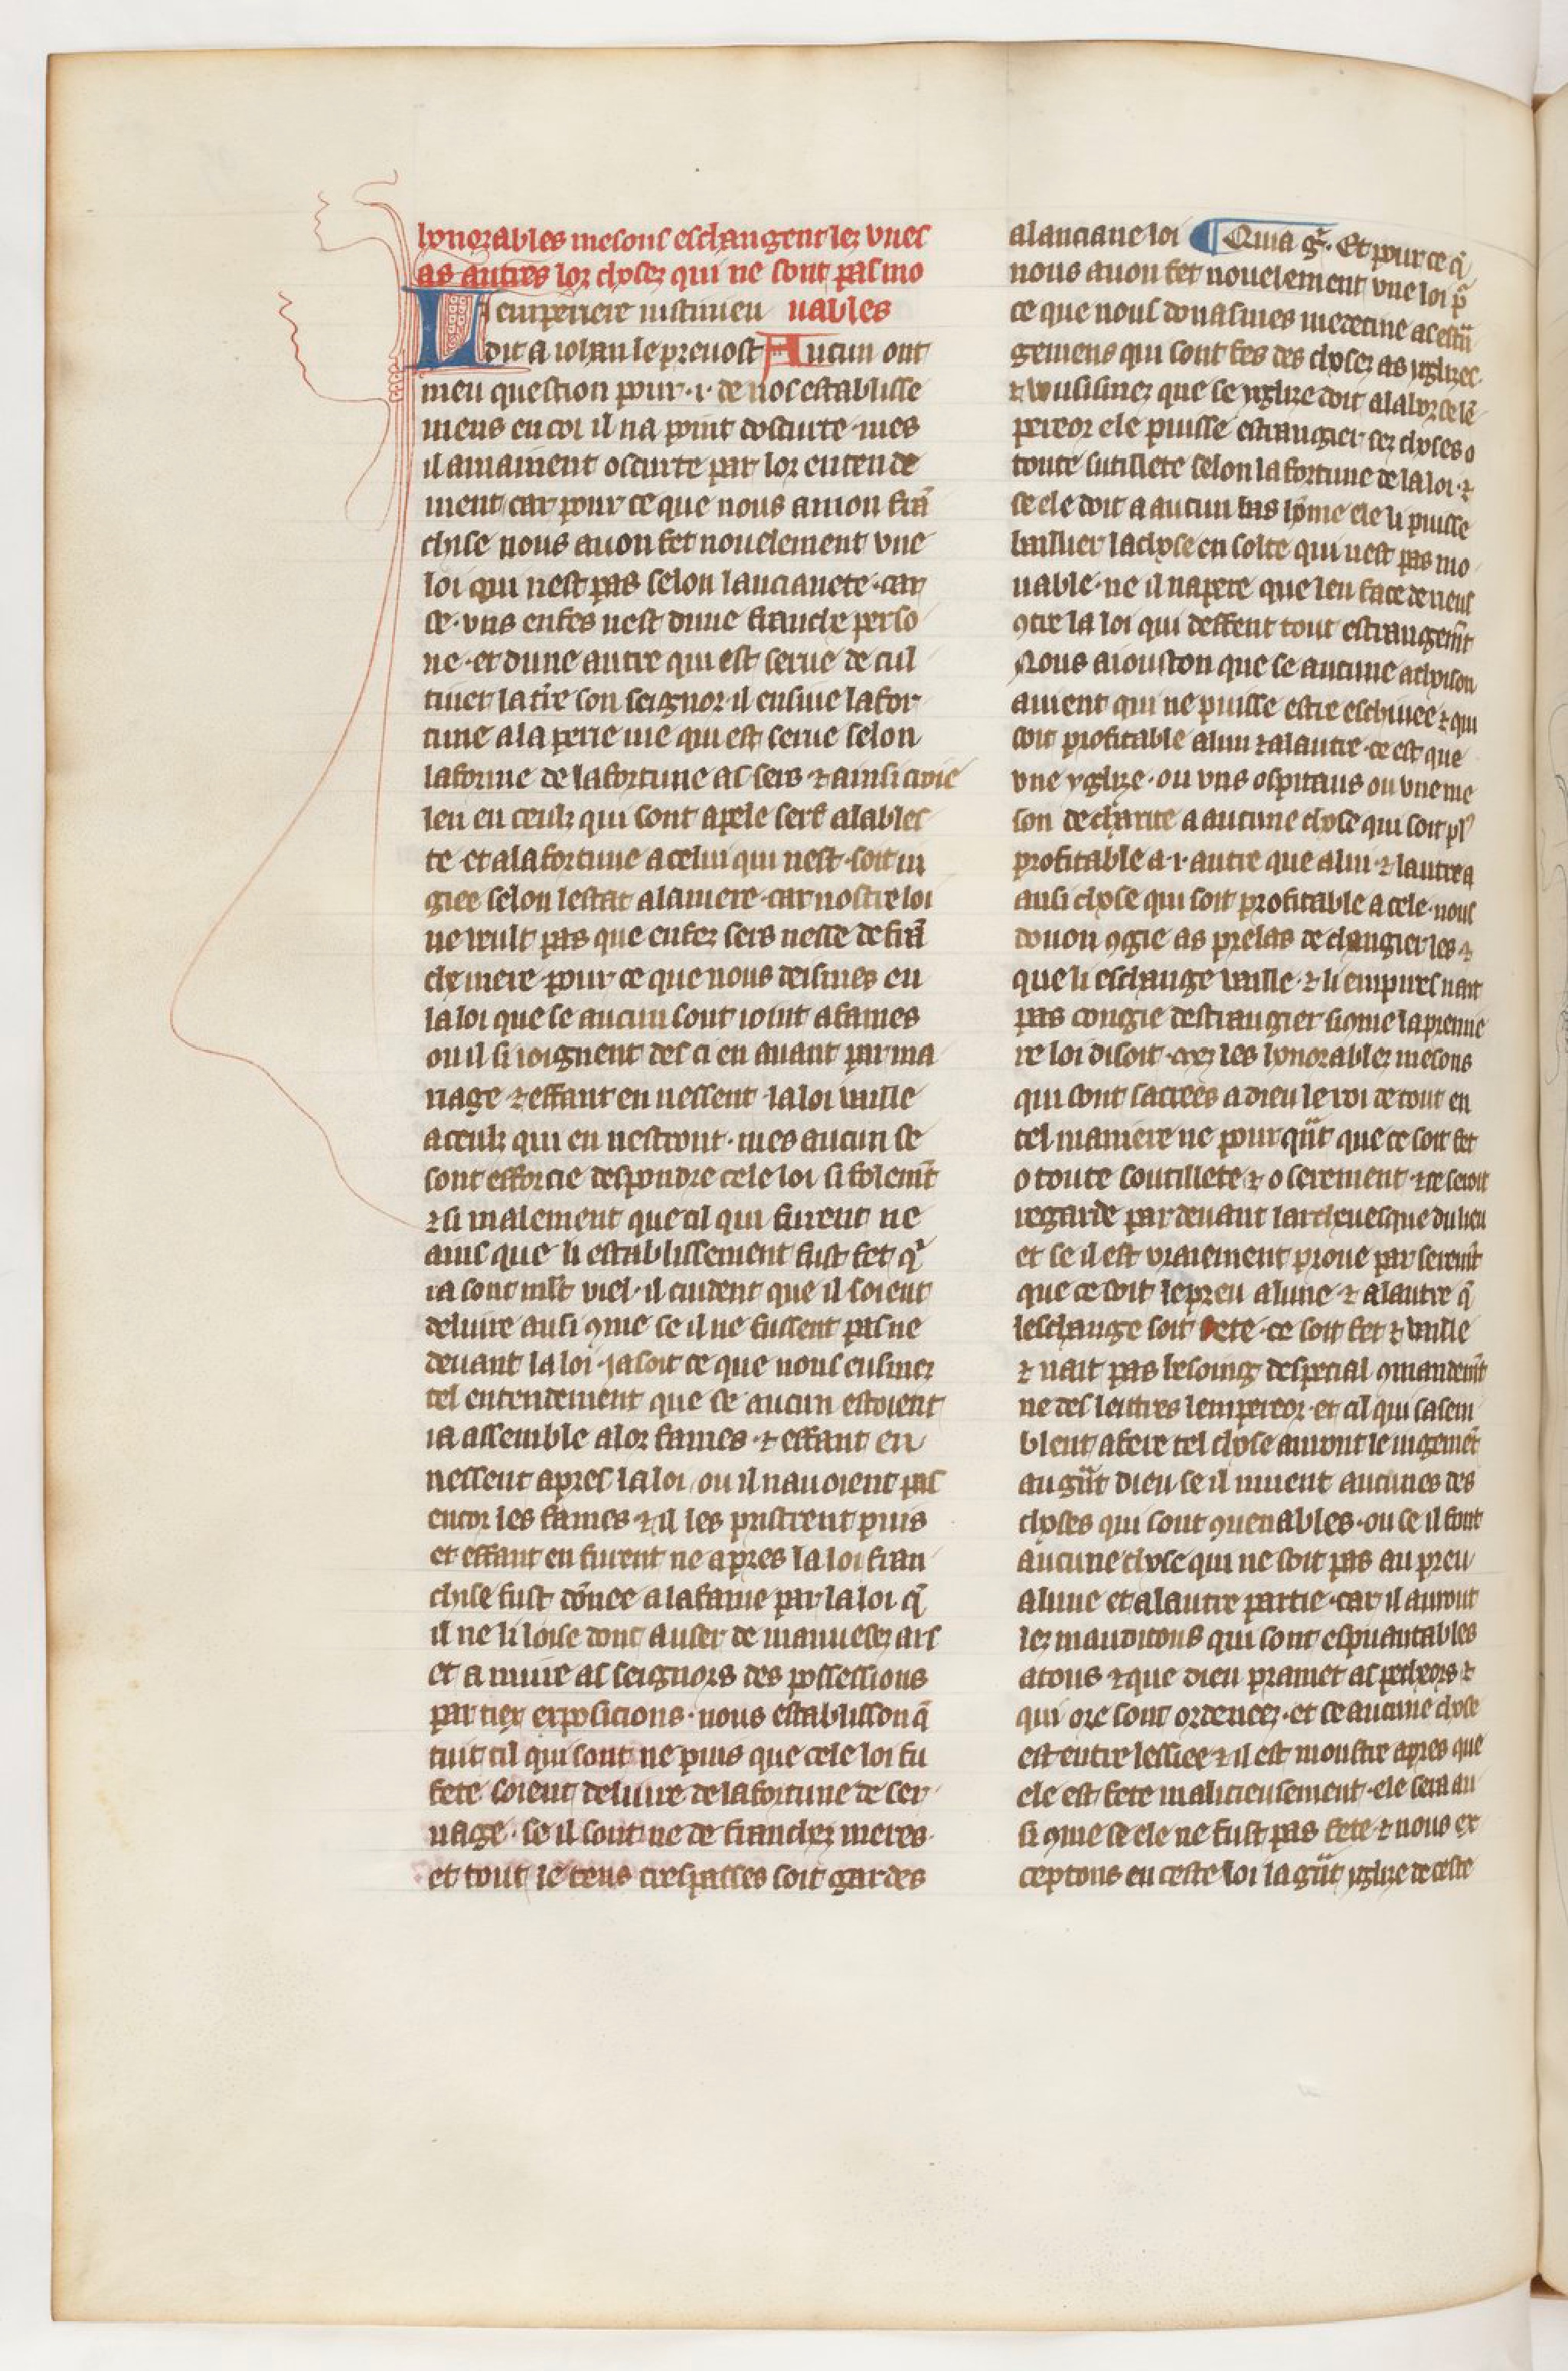 honorables mesons eschangent lez unes
as autres lor chosez qui ne sont pas mo
Li emperiere iustinien uables
dit a iohan le prevost Aucun ont
meu question pour .i. de nos establisse
mens en coi il na point doscurte mes
il amainent oscurte par lor entende
ment car pour ce que nous amon frā
chise nous avon fet novelement une
loi qui nest pas selon lancianete car
se uns enfes nest dune franche perso
ne et dune autre qui est serve de cul
tiver la t̄re son seignor il ensiue la for
tune a la perie me qui est serve selon
la forme de la fortune as sers ⁊ ainsi croie
len en ceulz qui sont apele serf a lables
te et a la fortune a celui qui nest soit iu
giee selon lestat a la mere car nostre loi
ne veult pas que enfez sers nesse de frā
che mere pour ce que nous deismes en
la loi que se aucun sont ioint a fames
ou il si ioignent des ci en avant par ma
riage ⁊ effant en nessent la loi vaille
a ceulz qui en nestront mes aucun se
sont efforcie despondre cele loi si folemēt
⁊ si malement que cil qui furent ne
ains que li establissement fust fet q̄
ia sont ml̄t viel il cuident que il soient
delivre ausi ꝯme se il ne fussent pas ne
devant la loi ja soit ce que nous eusmez
tel entendement que se aucun estoient
ia assemble a lor fames ⁊ effant en
nessent apres la loi ou il navoient pas
encor les fames ⁊ il les pristrent puis
et effant en furent ne apres la loi fran
chise fust dōnee a la fame par la loi q̄
il ne li loise dont a user de mauvesez ars
et a nuire as seignors des possessions
par tiex exposicions nous establisson q̄
tuit cil qui sont ne puis que cele loi fu
fete soient delivre de la fortune de ser
vage se il sont ne de franchez meres
et tout le tens trespasses soit gardes
a lanciane loi ¶ Quia ḡ. Et pour ce q̄
nous avon fet novelement une loi p̄
ce que nous donasmes medecine as estrā
gemens qui sont fes des chosez as yglizes
⁊ vousismez que se yglize doit a la borse lē
pereor ele puisse estrangier sez choses o
toute sutillete selon la fortune de la loi ⁊
se ele doit a aucun bas home ele li puisse
baillier la chose en solte qui nest pas mo
uable ne il napere que len face de riens
ꝯtre la loi qui deffent tout estrangemēt
Nous aiouston que se aucune achoison
avient qui ne puisse estre eschivee ⁊ qui
soit profitable a lun ⁊ a lautre ce est que
une yglize ou uns ospitaus ou une me
son de charite a aucune chose qui soit pl9
profitable a .i. autre que a lui ⁊ lautre a
ausi chose qui soit profitable a cele nous
donon ꝯgie as prelas de changier les ⁊
que li eschange vaille ⁊ li empires nait
pas congie destrangier si ꝯme la premie
re loi disoit mez les honorablez mesons
qui sont sacrees a dieu le roi de tout en
tel maniere ne pour qūt que ce soit fet
o toute soutillete ⁊ o serement ⁊ ce seroit
regarde par devant larchevesque du lieu
et se il est vraiement prove par seremēt
que ce soit le preu a lune ⁊ a lautre q̄
leschange soit fete ce soit fet ⁊ vaille
⁊ nait pas besoing despecial ꝯmandemēt
ne des lettres lempereor et cil qui sasem
blent a fere tel chose auront le iugemēt
au gr̄ūt dieu se il muent aucunes des
choses qui sont ꝯuenables ou se il font
aucune chose qui ne soit pas au preu
a lune et a lautre partie car il auront
lez maudicons qui sont espuantables
a tous ⁊ que dieu pramet as pecheors ⁊
qui ore sont ordenez et se aucune chose
est entre lessiee ⁊ il est moustre apres que
ele est fete malicieusement ele sera au
si ꝯme se ele ne fust pas fete ⁊ nous ex
ceptons en ceste loi la gr̄ūt yglize de ceste